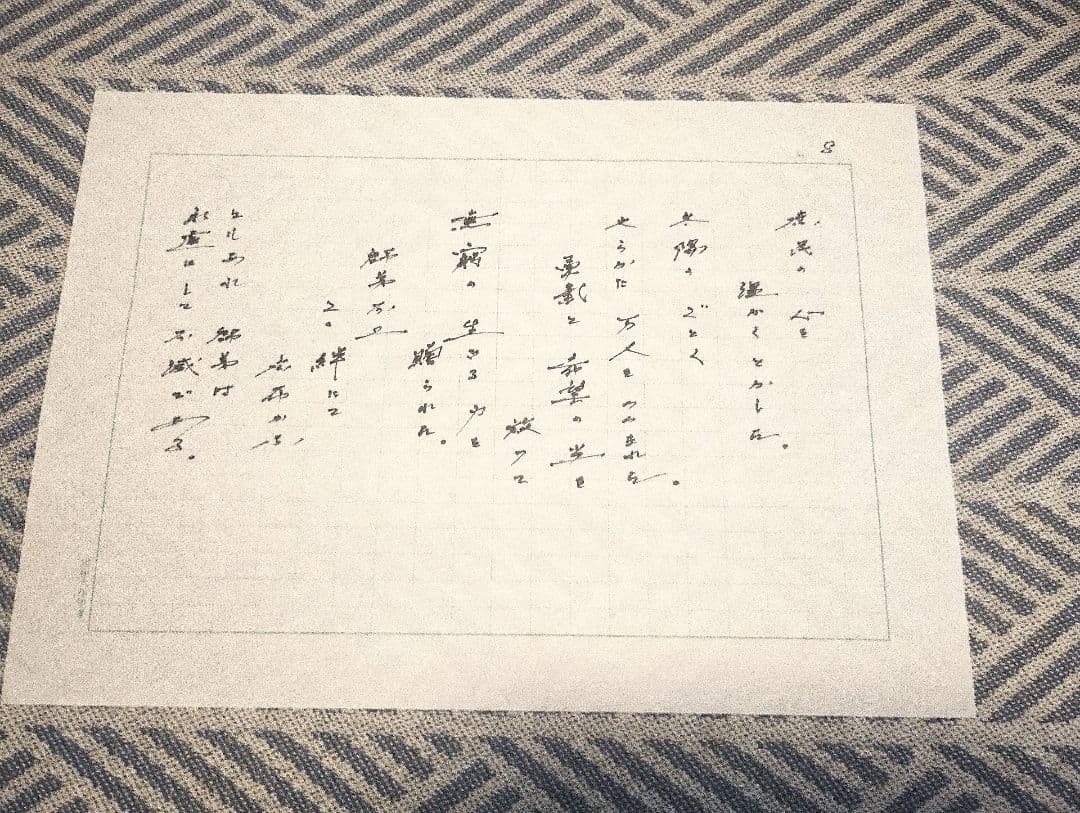 8
庶民の心を
温かくとかした。
太陽のごとく
やうかに万人をつつまれた。
勇氣と希望の光を
放って
無窮の生きる力を
贈られた。
師弟不二
この絆にて
さもあれ師弟は
永遠にして不滅である。